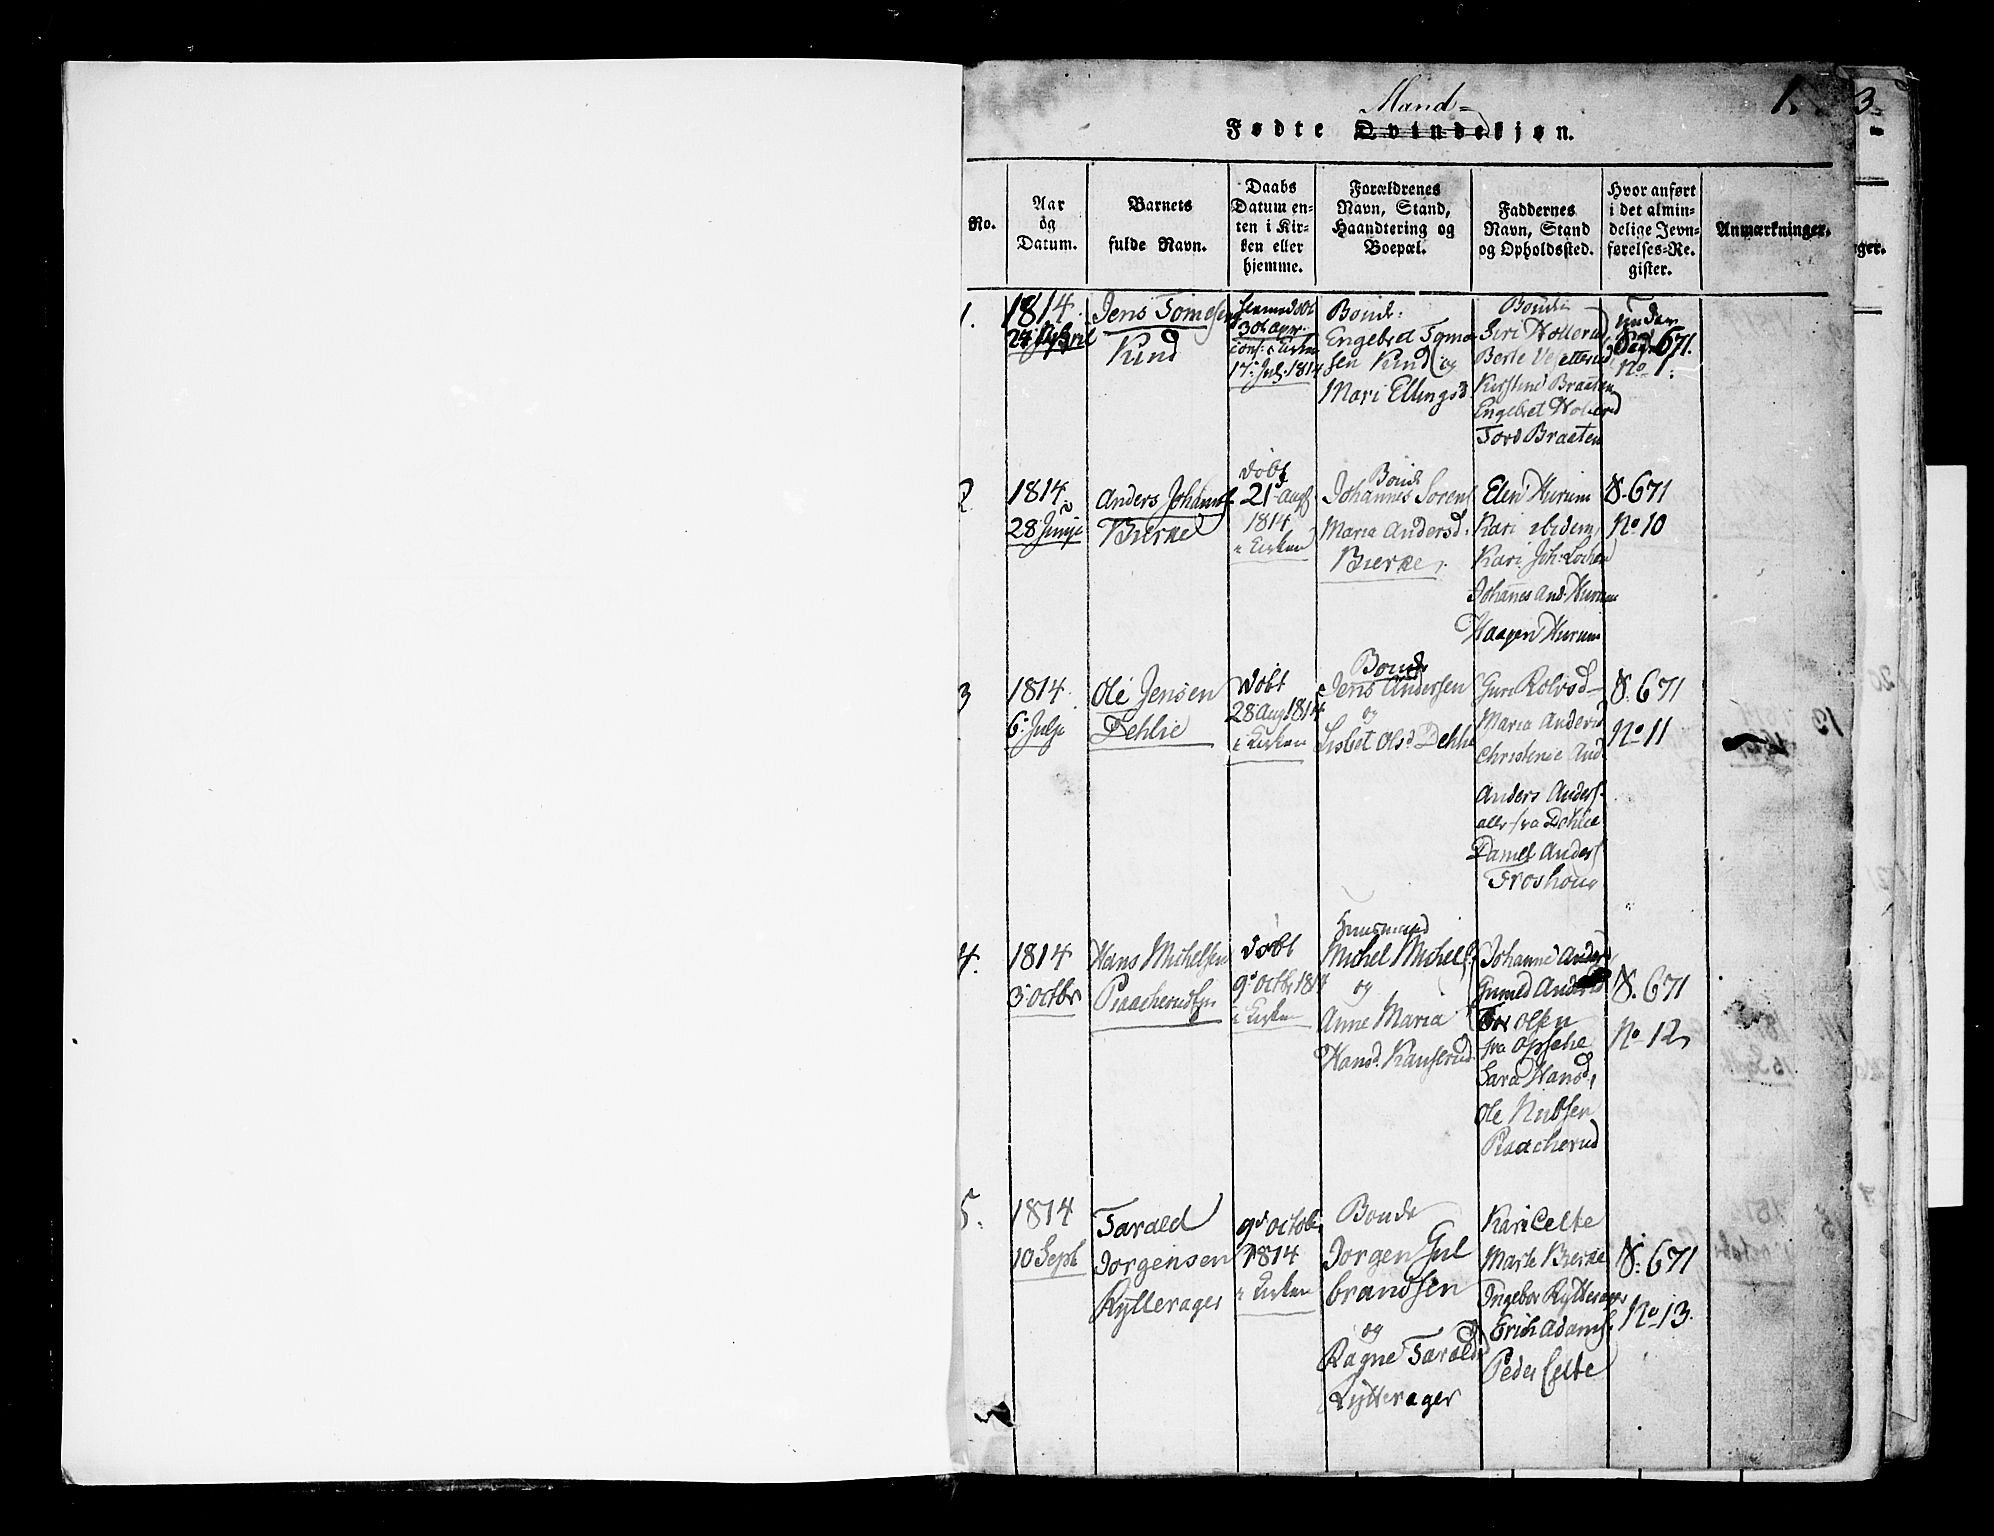 1.
Mand=
Fødte Qvindekjøn.
No.
Aar
og
Datum.
Barnets
fulde Navn.
Daabs
Datum en-
ten i Kir-
ken eller
hjemme.
Forældrenes
Navn, Stand,
Haandtering og
Boepæl.
Faddernes
Navn, Stand
og Opholdssted.
Hvor anført
i det almin-
delige Jevn-
førelses-Re-
gister.
Anmærkninger.
1.
1814
24 April
Jens
Kind
30t Apr.
17. Jul. 1814
Bonde
Engebret
sen Kind og
Mari Ellingsd
Siri Hollerud
Berte
Kirstine Braaten
Engebret Hollerud
Tord Braaten
671.
No 1.
2
1814
28 Junje
Anders Johannes
Bierke
døbt
21 Augs
1814
i Kirken
Bonde
Johannes Sorens
Maria Andersd.
Bierke
Elen Hurum
Kari ibidem
Kari Joh: Lochen
Johannes And. Hurum
Haagen Hurum
S. 671
No 10
3
1814
6. Julje
Ole Jensen
Dehlie
døbt
28 Aug 1814
i Kirken
Bonde
Jens Andersen
og
Lisbet Olsd Dehlie
Guri Rolvsd
Maria Andersd
Christense And.
Anders Anders.
alle fra Dehlie
Daniel Anders
Froshoug
S. 671
No 11
4.
1814
3 Octbr
Hans Michelsen
døbt
9d Octbr 1814
i Kirken
Huusmand
Michel Michels
og
Anne Maria
Hansd.
Johanne Anders
Anders
Olsen
fra Opsche
Sara Hansd,
Ole
Raacherud
S. 671
No 12
5.
1814
10 Sept
Tarald
Jorgensen
Rytterager
9d Octob
1814
i Kirken
Bonde
Jorgen Gul
brandsen
og
Ragne Taralds
Rytterager
Kari Celte
Marte Bierke
Ingebor Rytterager
Erich Adams.
Peder Celte
S. 671
No 13.
3